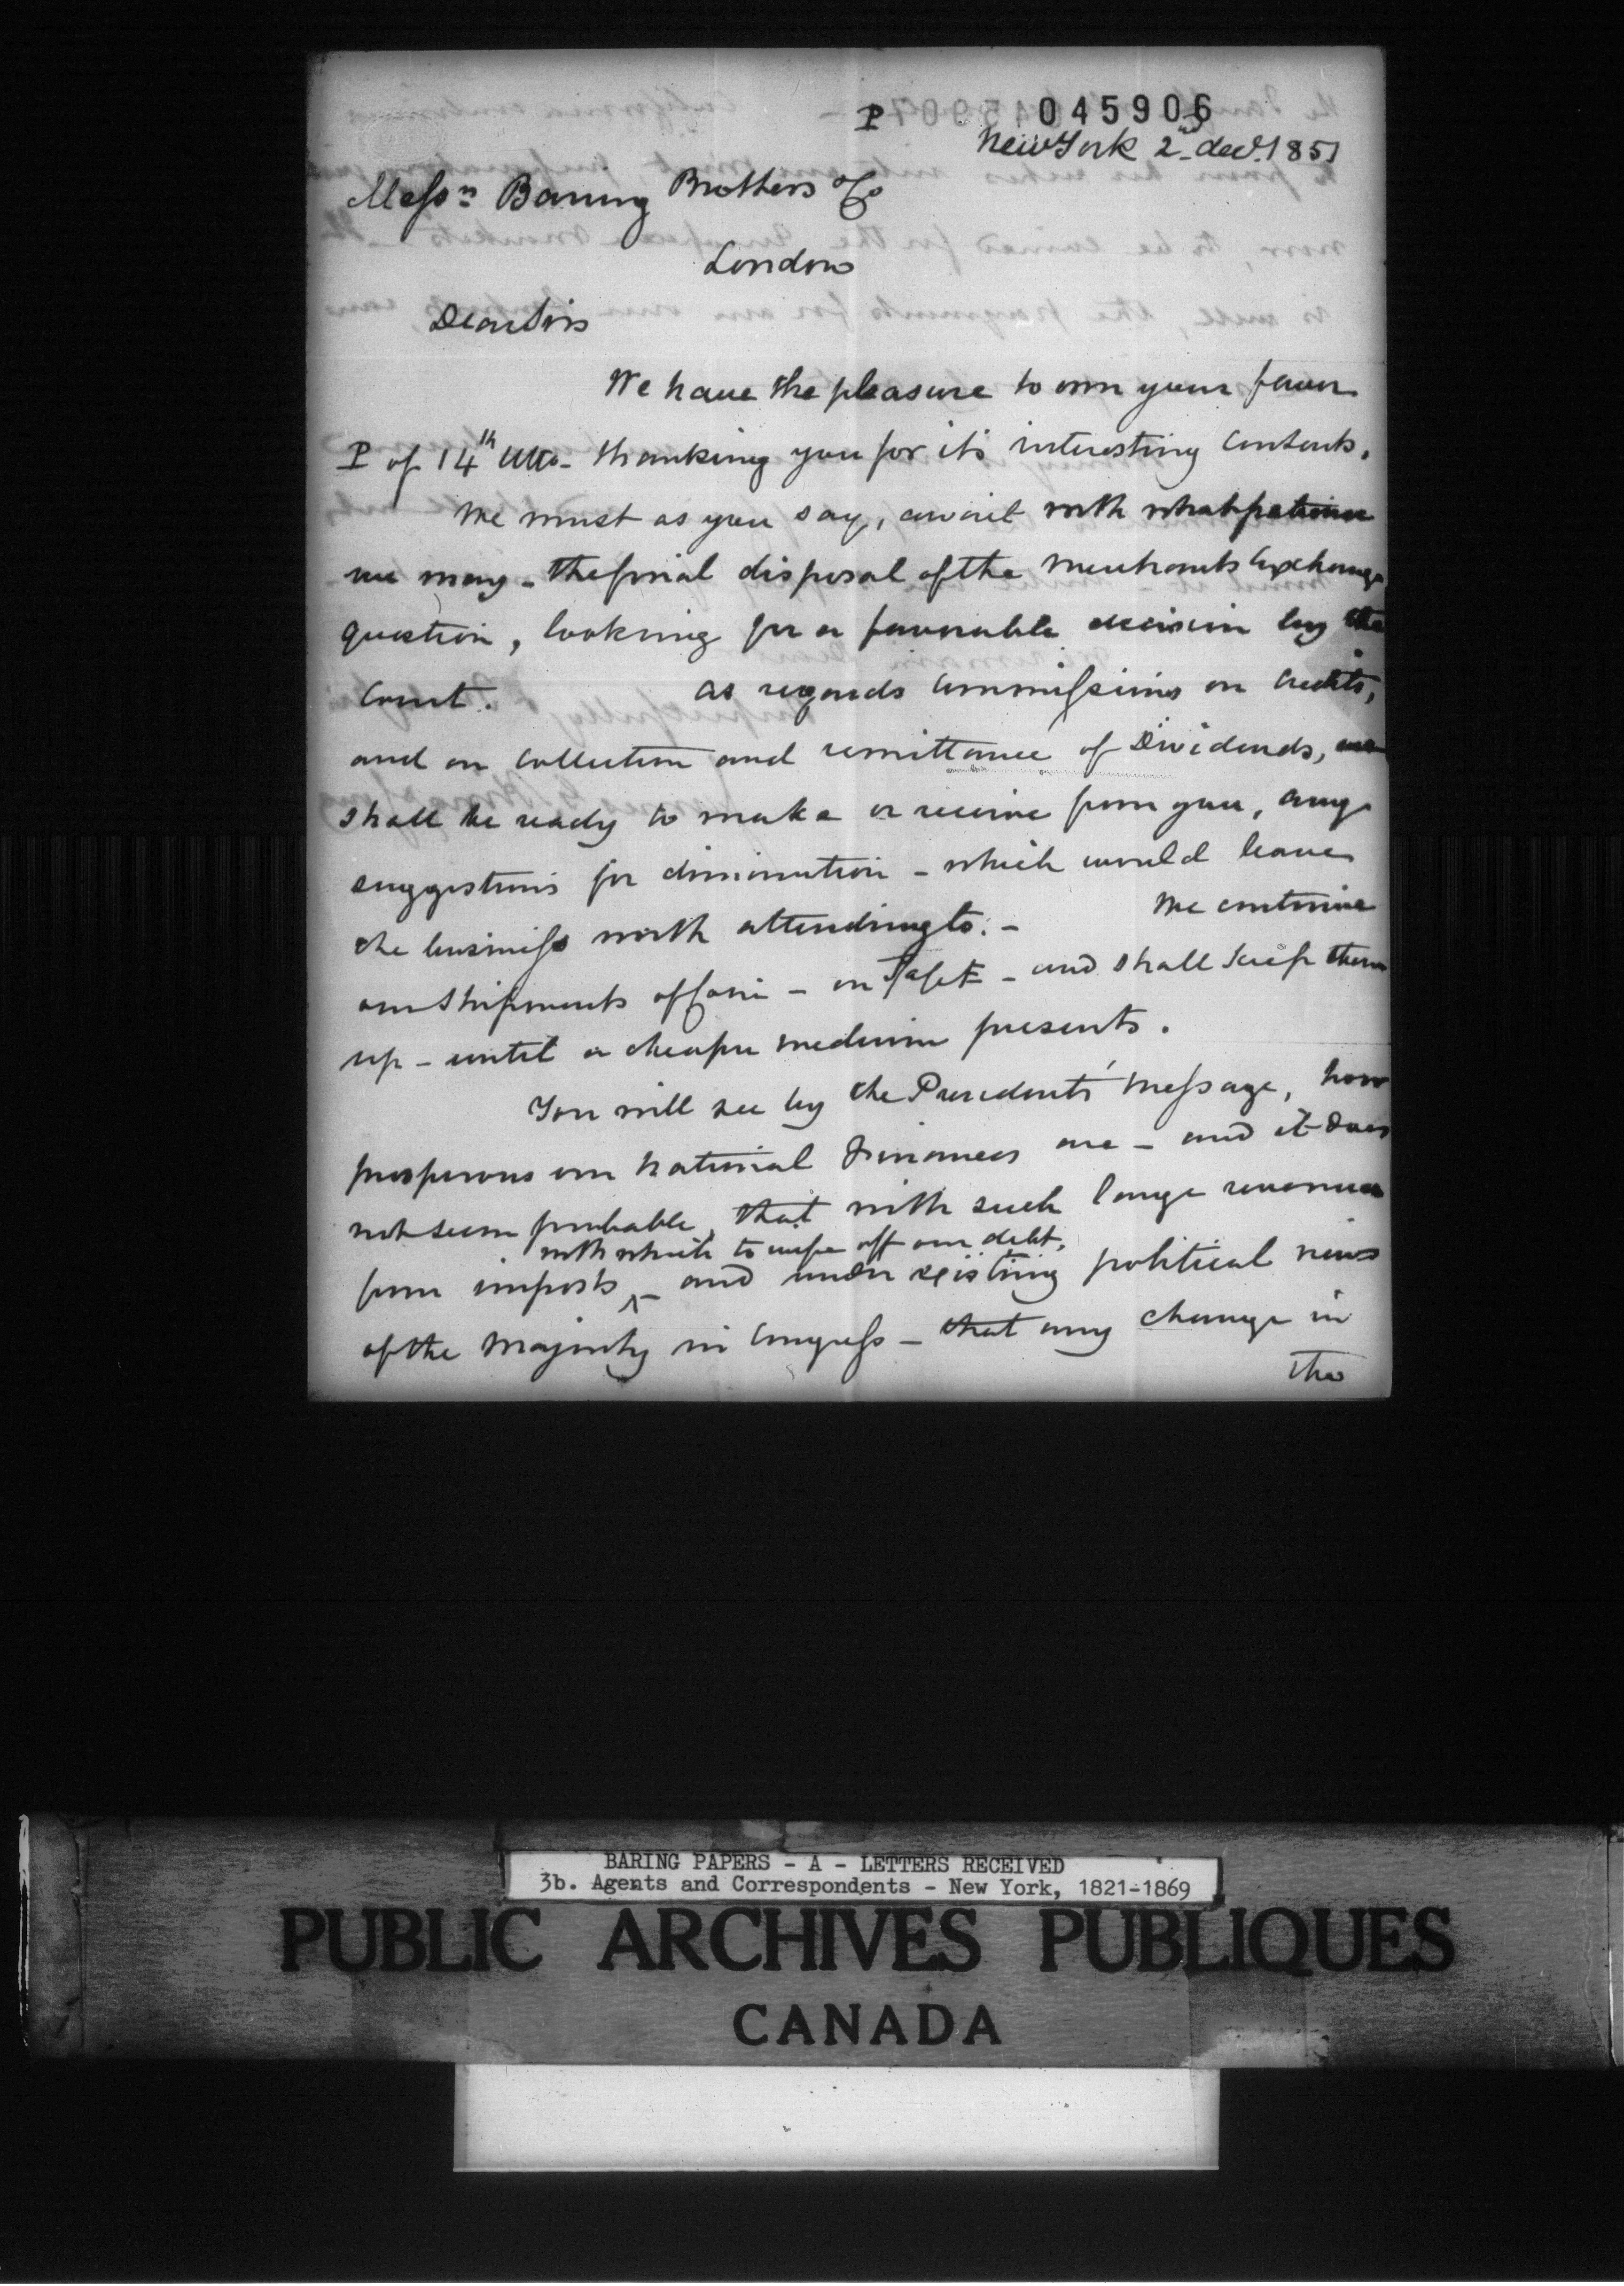 P 045906
New York 2nd decr. 1851
Messrs Baring Brothers & Co
London
Dear Sirs
We have the pleasure to own your favor
P of 14th Ulto - thanking you for it's interesting contents.
We must as you say, await with what patience
we may - the final disposal of the Merchants Exchange
question, looking for a favorable decision by the
Court. As regards Commissions on Credits,
and on Collection and remittance of Dividends, we
shall be ready to make or receive from you, any
suggestions for diminution - which would leave
the business worth attending to. - We continue
our shipments of Coin - on - and shall keep them
up - until a cheaper medium presents.
You will see by the Presidents' Message, how
prosperous our National Finances are - and it does
not seem probable, that with such large revenues
with which to wipe off our debt,
from imposts ^ - and under existing political views
of the Majority in Congress - that any change in
the
BARING PAPERS - A - LETTERS RECEIVED
3b. Agents and Correspondents - New York, 1821-1869
PUBLIC ARCHIVES PUBLIQUES
CANADA